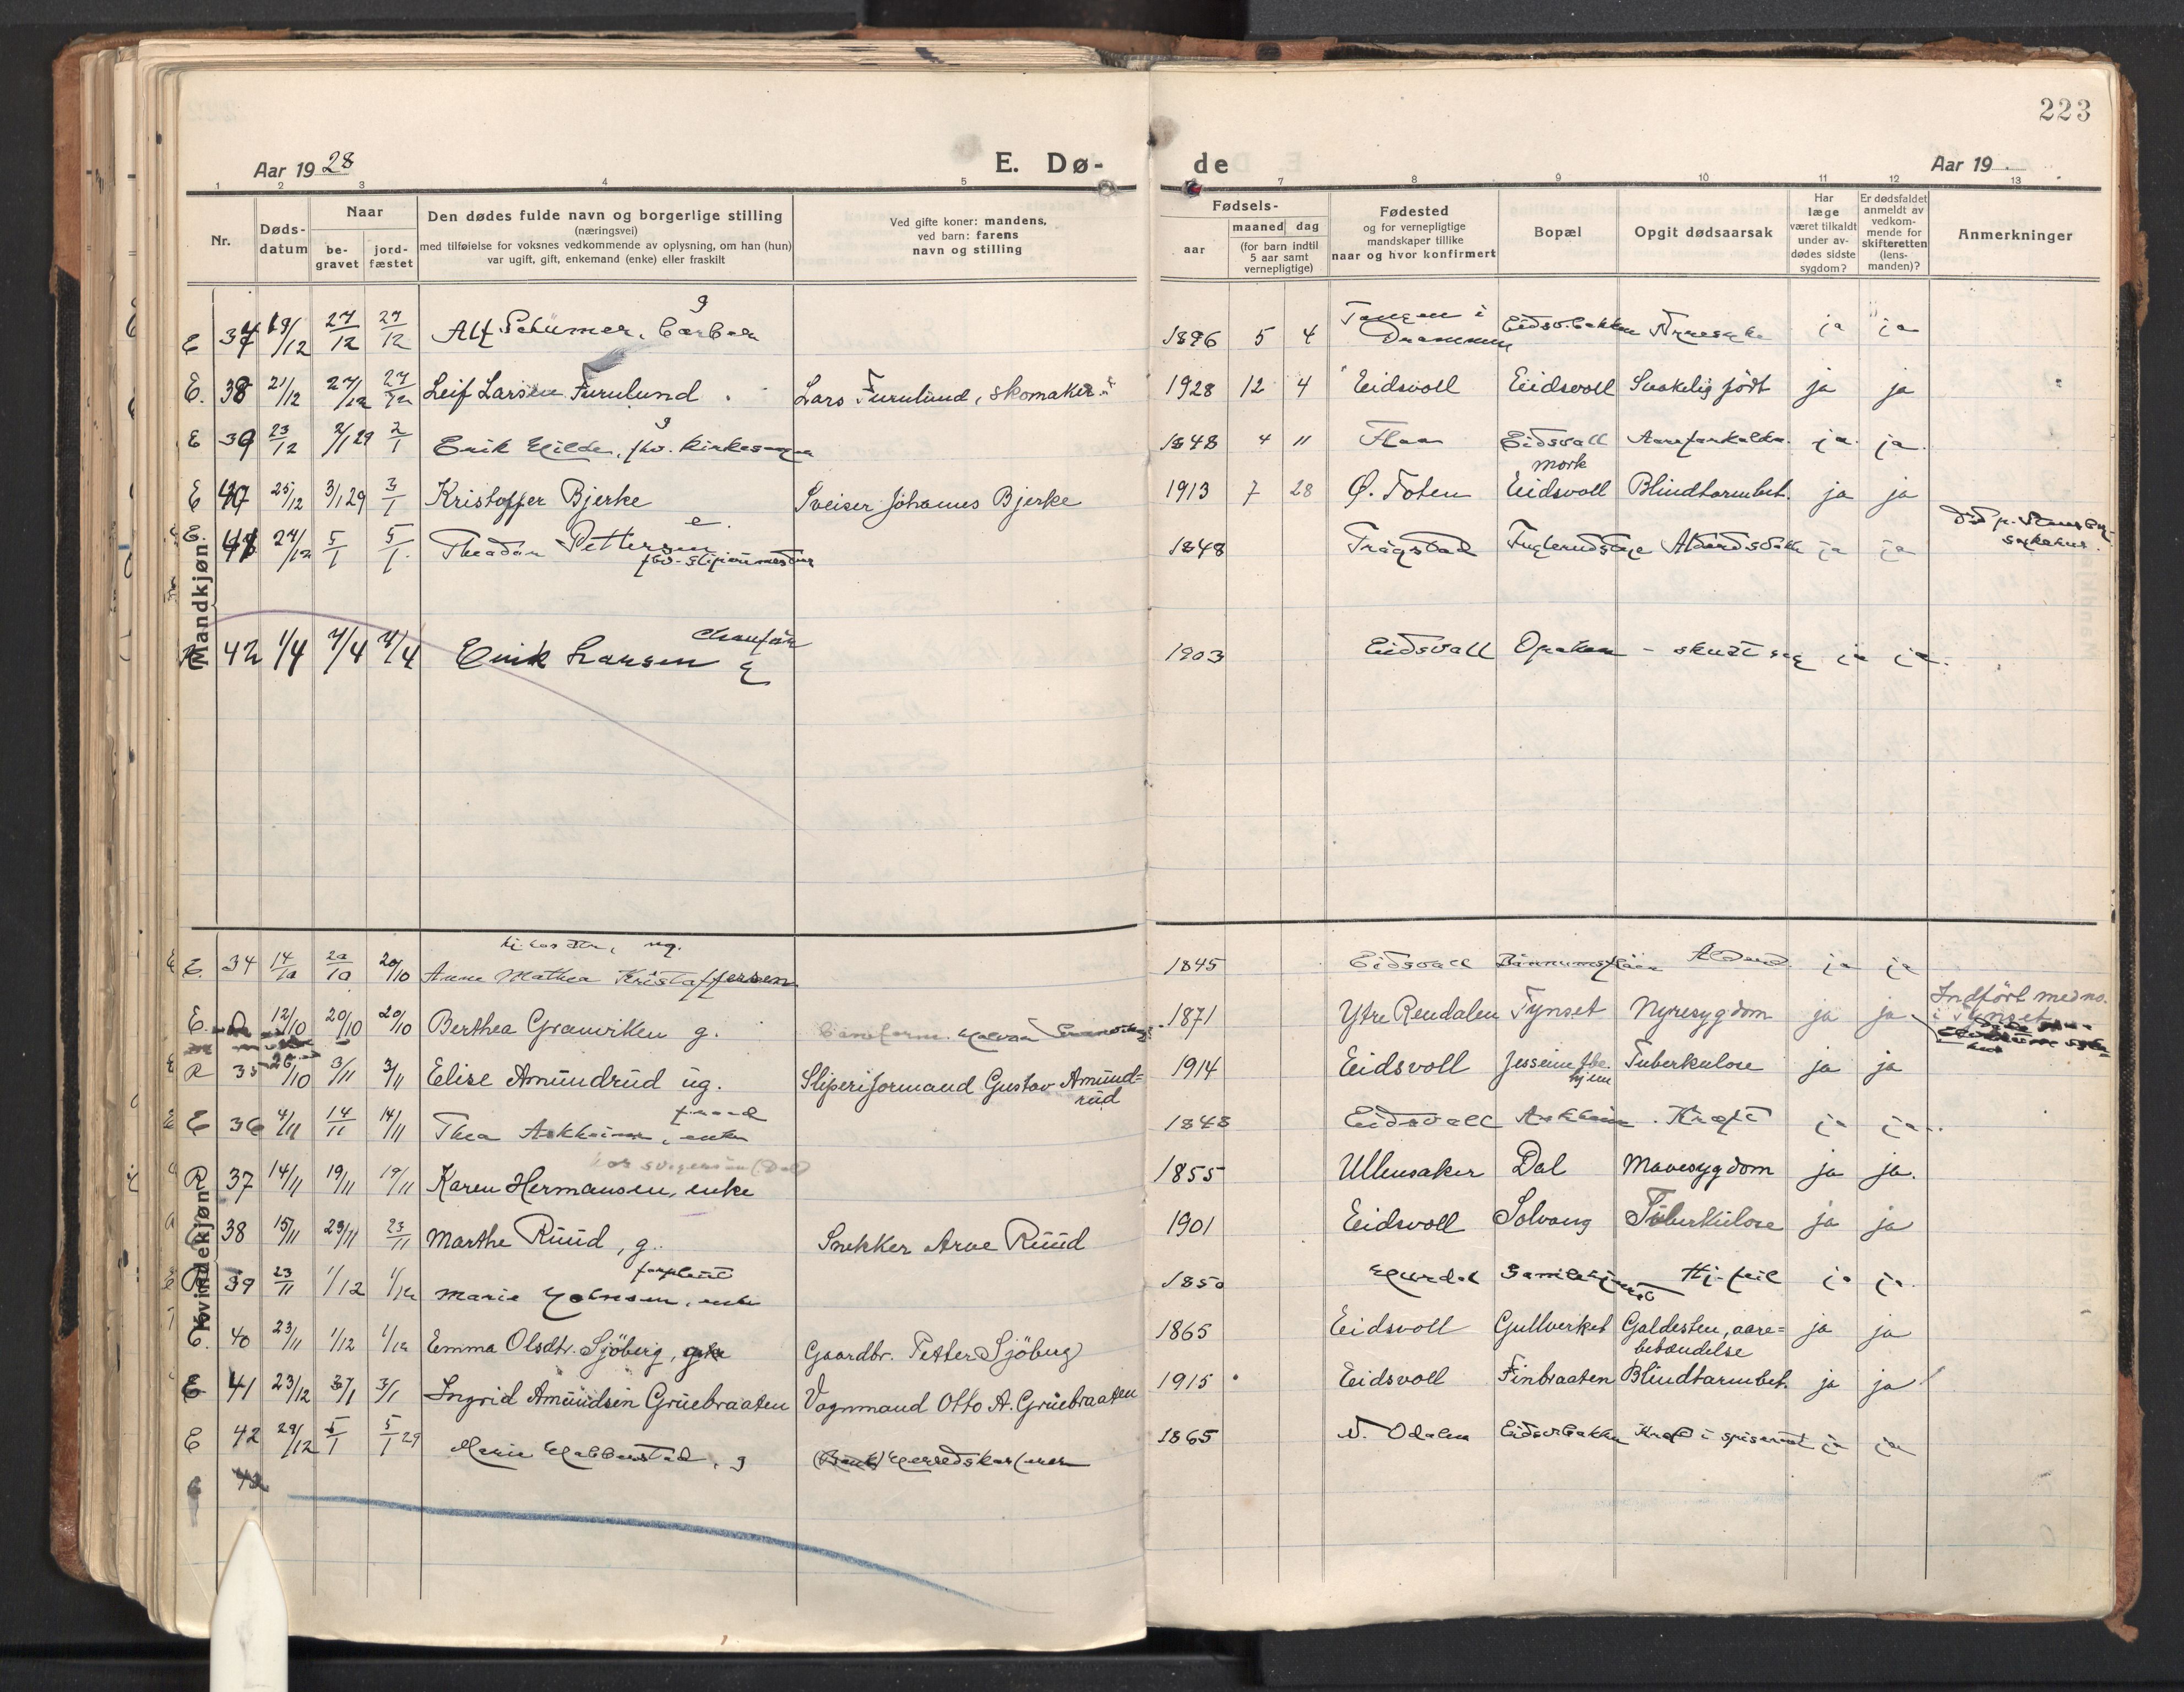 223
Aar 19 28 E. Dø- de Aar 19
1 2 3 4 5 7 8 9 10 11 12 13
Nr.
Døds-
datum
Naar
be-
gravet
jord-
fæstet
Den dødes fulde navn og borgerlige stilling
(næringsvei)
med tilføielse for voksnes vedkommende av oplysning, om han (hun)
var ugift, gift, enkemand (enke) eller fraskilt
Ved gifte koner: mandens,
ved barn: farens
navn og stilling
Fødsels-
aar
maaned dag
(for barn indtil
5 aar samt
vernepligtige)
Fødested
og for vernepligtige
mandskaper tillike
naar og hvor konfirmert
Bopæl
Opgit dødsaarsak
Har
læge
været tilkaldt
under av-
dødes sidste
sygdom?
Er dødsfaldet
anmeldt av
vedkom-
mende for
skifteretten
(lens-
manden)?
Anmerkninger
Mandkjøn
E 37 19/12 27/12 27/12 Alf Schümer, barber g 1896 5 4 Tangen i Drammen Eidsv.bakken Nyresyke ja ja
E. 38 21/12 27/12 27/12 Leif Larsen Furulund Lars Furulund, skomaker 1928 12 4 Eidsvoll Eidsvoll Svakelig født ja ja
E 39 23/12 2/1 29 2/1 Erik Hilde, fhv. kirkesanger g 1848 4 11 Flaa Eidsvall Aareforkalkn. ja ja
E 40 25/12 3/1 29 3/1 Kristoffer Bjerke Sveiser Johannes Bjerke 1913 7 28 Ø. Toten mork Eidsvoll Blindtarmbet. ja ja
E. 41 27/12 5/1 5/1 Theodor Pettersen e. 1848 Trøgstad ja ja
42 1/4 7/4 7/4 Erik Larsen chauffør g 1903 Eidsvall Opaken - skudt seg ja ja
Kvindekjøn
E. 34 14/10 20/10 20/10 Anne Mathea Kristoffersen ug. 1845 Eidsvall Alderd. ja ja
E. 12/10 20/10 20/10 Berthea Granviken g. 1871 Ytre Rendalen Tynset Nyresygdom ja ja Indført med no.
i Tynset
R 35 26/10 3/11 3/11 Elise Amundrud ug. Sliperiformand Gustav Amund=
rud 1914 Eidsvoll Tuberkulose ja ja
E 36 4/11 14/11 14/11 Thea Askheim, enke 1848 Eidsvall Askheim Kræft ja ja
R 37 14/11 19/11 19/11 Karen Hermansen, enke 1855 Ullensaker Dal Mavesygdom ja ja.
38 15/11 23/11 23/11 Marthe Ruud, g. Snekker Arve Ruud 1901 Eidsvoll Solvang Tuberkulose ja ja
R 39 23/11 1/12 1/12 Marie, enke 1850 Hurdal Hj.feil ja ja
E. 40 23/11 1/12 1/12 Emma Olsdtr. Sjöberg, Gaardbr. Petter Sjöberg 1865 Eidsvoll Gullverket Galdesten, aare=
betændelse ja ja
E 41 23/12 3/1 3/1 Ingrid Amundsen Gruebraaten Vognmand Otto A. Gruebraaten 1915 Eidsvoll Finbraaten Blindtarmbet. ja ja
E 42 29/12 5/1 5/1 29 Marie, g 1865 N. Odalen Eidsv.bakken Kræft i spiserøret ja ja